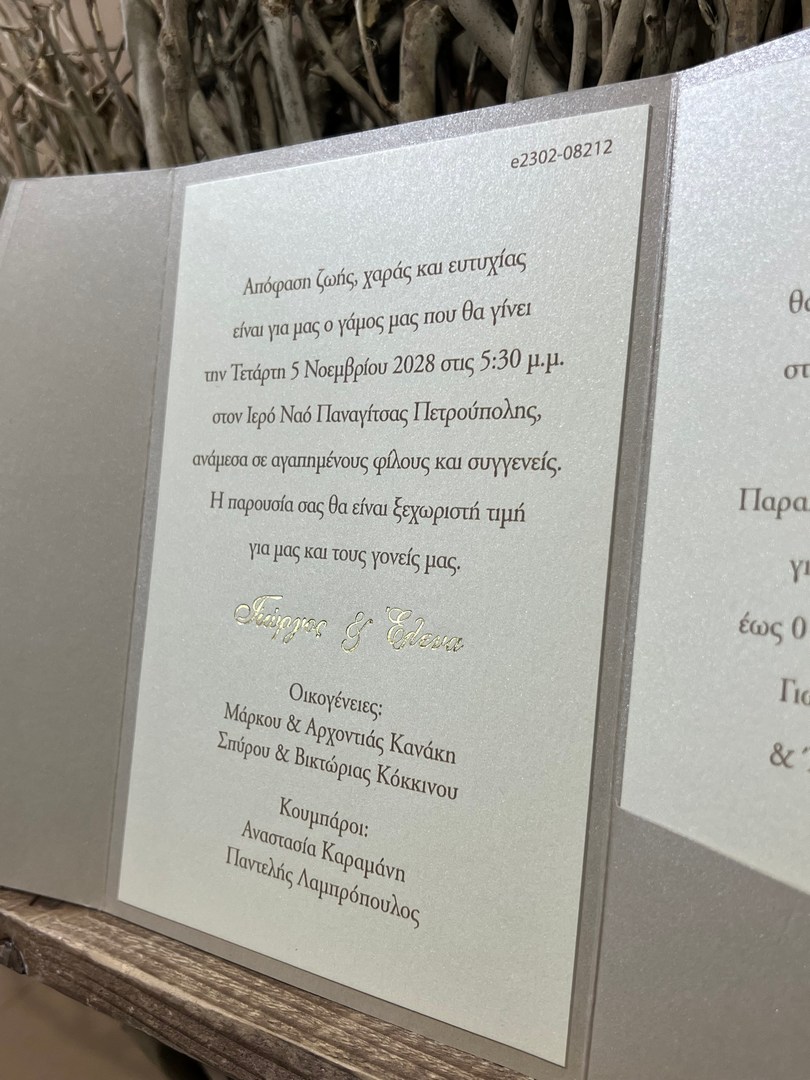 e2302-08212
Απόφαση ζωής, χαράς και ευτυχίας
είναι για μας ο γάμος μας που θα γίνει
την Τετάρτη 5 Νοεμβρίου 2028 στις 5:30 μ.μ.
στον Ιερό Ναό Παναγίτσας Πετρούπολης,
ανάμεσα σε αγαπημένους φίλους και συγγενείς.
Η παρουσία σας θα είναι ξεχωριστή τιμή
για μας και τους γονείς μας.
Γιώργος & Έλενα
Οικογένειες:
Μάρκου & Αρχοντιάς Κανάκη
Σπύρου & Βικτώριας Κόκκινου
Κουμπάροι:
Αναστασία Καραμάνη
Παντελής Λαμπρόπουλος
έως 0
&